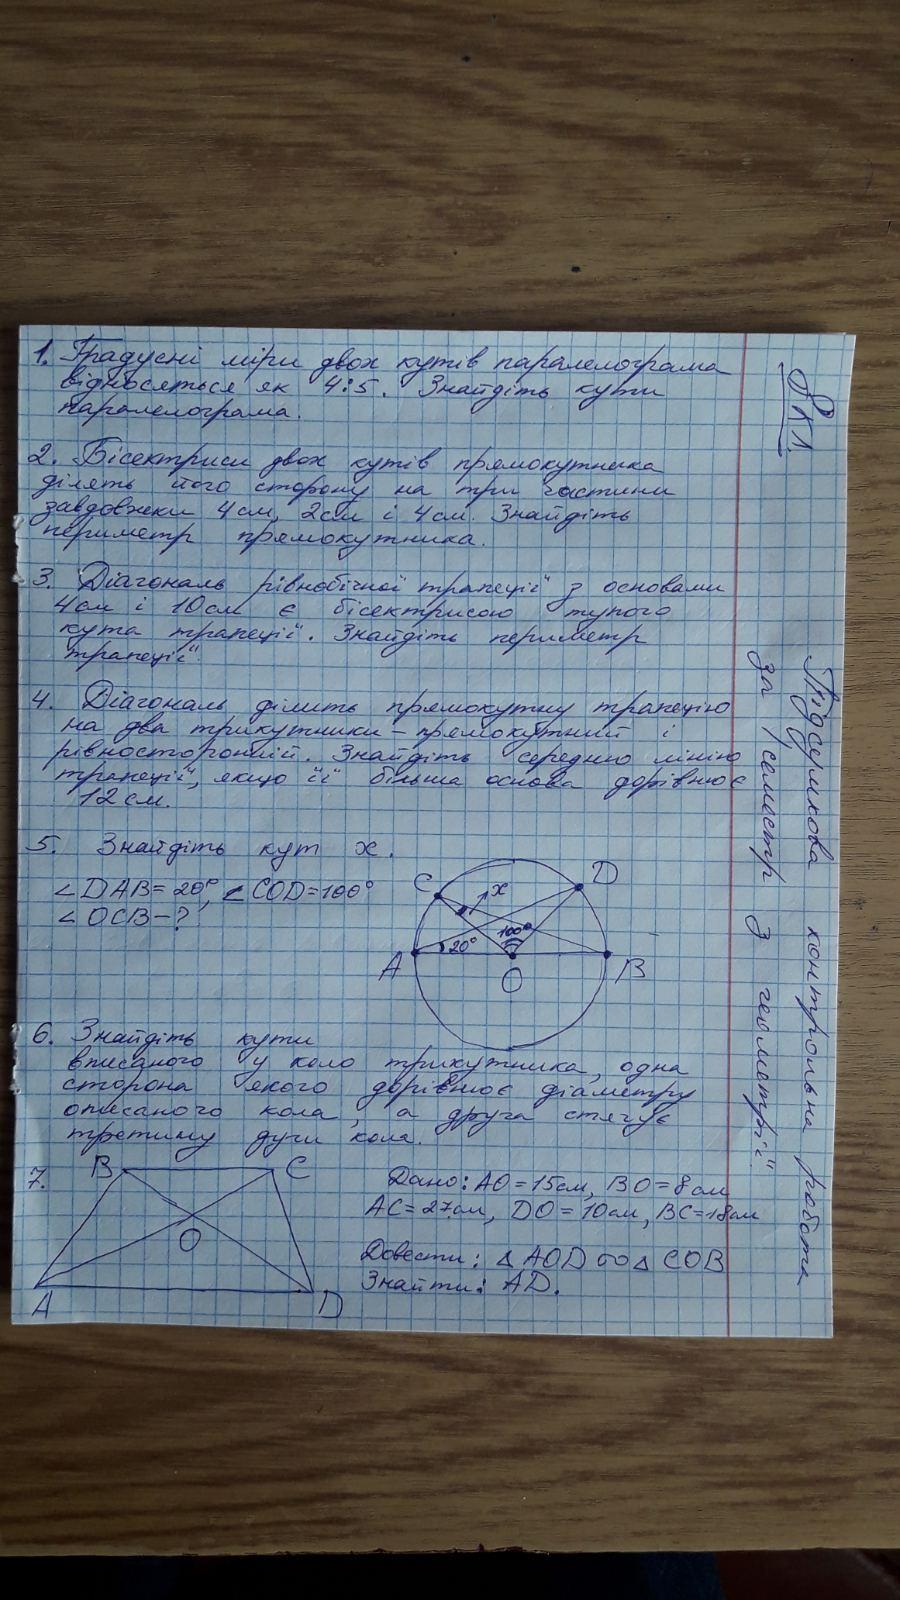 8 кл.
Підсумкова контрольна робота
за I семестр з геометрії.
1. Градусні міри двох кутів паралелограма
відносяться як 4:5. Знайдіть кути
паралелограма.
2. Бісектриси двох кутів прямокутника
ділять його сторону на три частини
завдовжки 4см, 2см і 4см. Знайдіть
периметр прямокутника.
3. Діагональ рівнобічної трапеції з основами
4см і 10см є бісектрисою тупого
кута трапеції. Знайдіть периметр
трапеції.
4. Діагональ ділить прямокутну трапецію
на два трикутники – прямокутний і
рівносторонній. Знайдіть середню лінію
трапеції, якщо її більша основа дорівнює
12 см.
5. Знайдіть кут x.
∠DAB=20°, ∠COD=100°
∠OCB–?
C D x
100°
A 20° O B
6. Знайдіть кути
вписаного у коло трикутника, одна
сторона якого дорівнює діаметру
описаного кола, а друга стягує
третину дуги кола.
7. B C
O
A D
Дано: AO=15см, BO=8см
AC=27см, DO=10см, BC=18см
Довести: △AOD∾△COB
Знайти: AD.